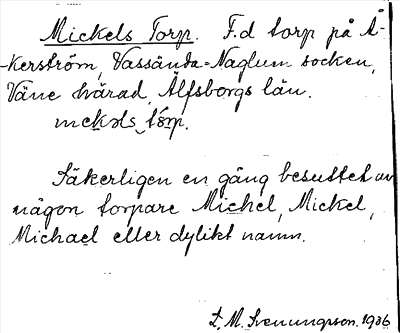 Mickels Torp. F.d torp på Å-
-kerström, Vassända-Naglum socken,
Väne härad, Älfsborgs län.
Säkerligen en gång besuttet av
någon torpare Michel, Mickel,
Michael eller dylikt namn.
L. M. Svenungson. 1936